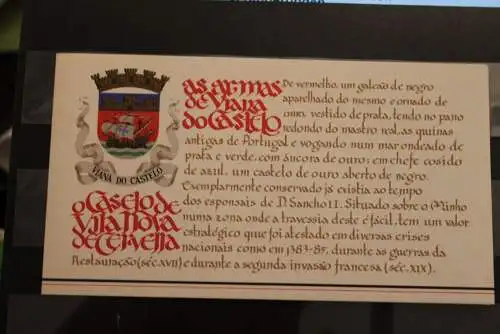 as armas
de Viana
do Castelo
De vermelho, um galeão de negro
aparelhado do mesmo e ornado de
ouro, vestido de prata, tendo no pano
redondo do mastro real, as quinas
antigas de Portugal e vogando num mar ondeado de
prata e verde, com âncora de ouro; em chefe cosido
de azul, um castelo de ouro aberto de negro.
VIANA DO CASTELO
o Castelo de
Vila Nova
de Cerveira
Exemplarmente conservado já existia ao tempo
dos esponsais de D. Sancho II. Situado sobre o Minho
numa zona onde a travessia deste é fácil, tem um valor
estratégico que foi atestado em diversas crises
nacionais como em 1383-85, durante as guerras da
Restauração (séc. XVII) e durante a segunda invasão francesa (séc. XIX).